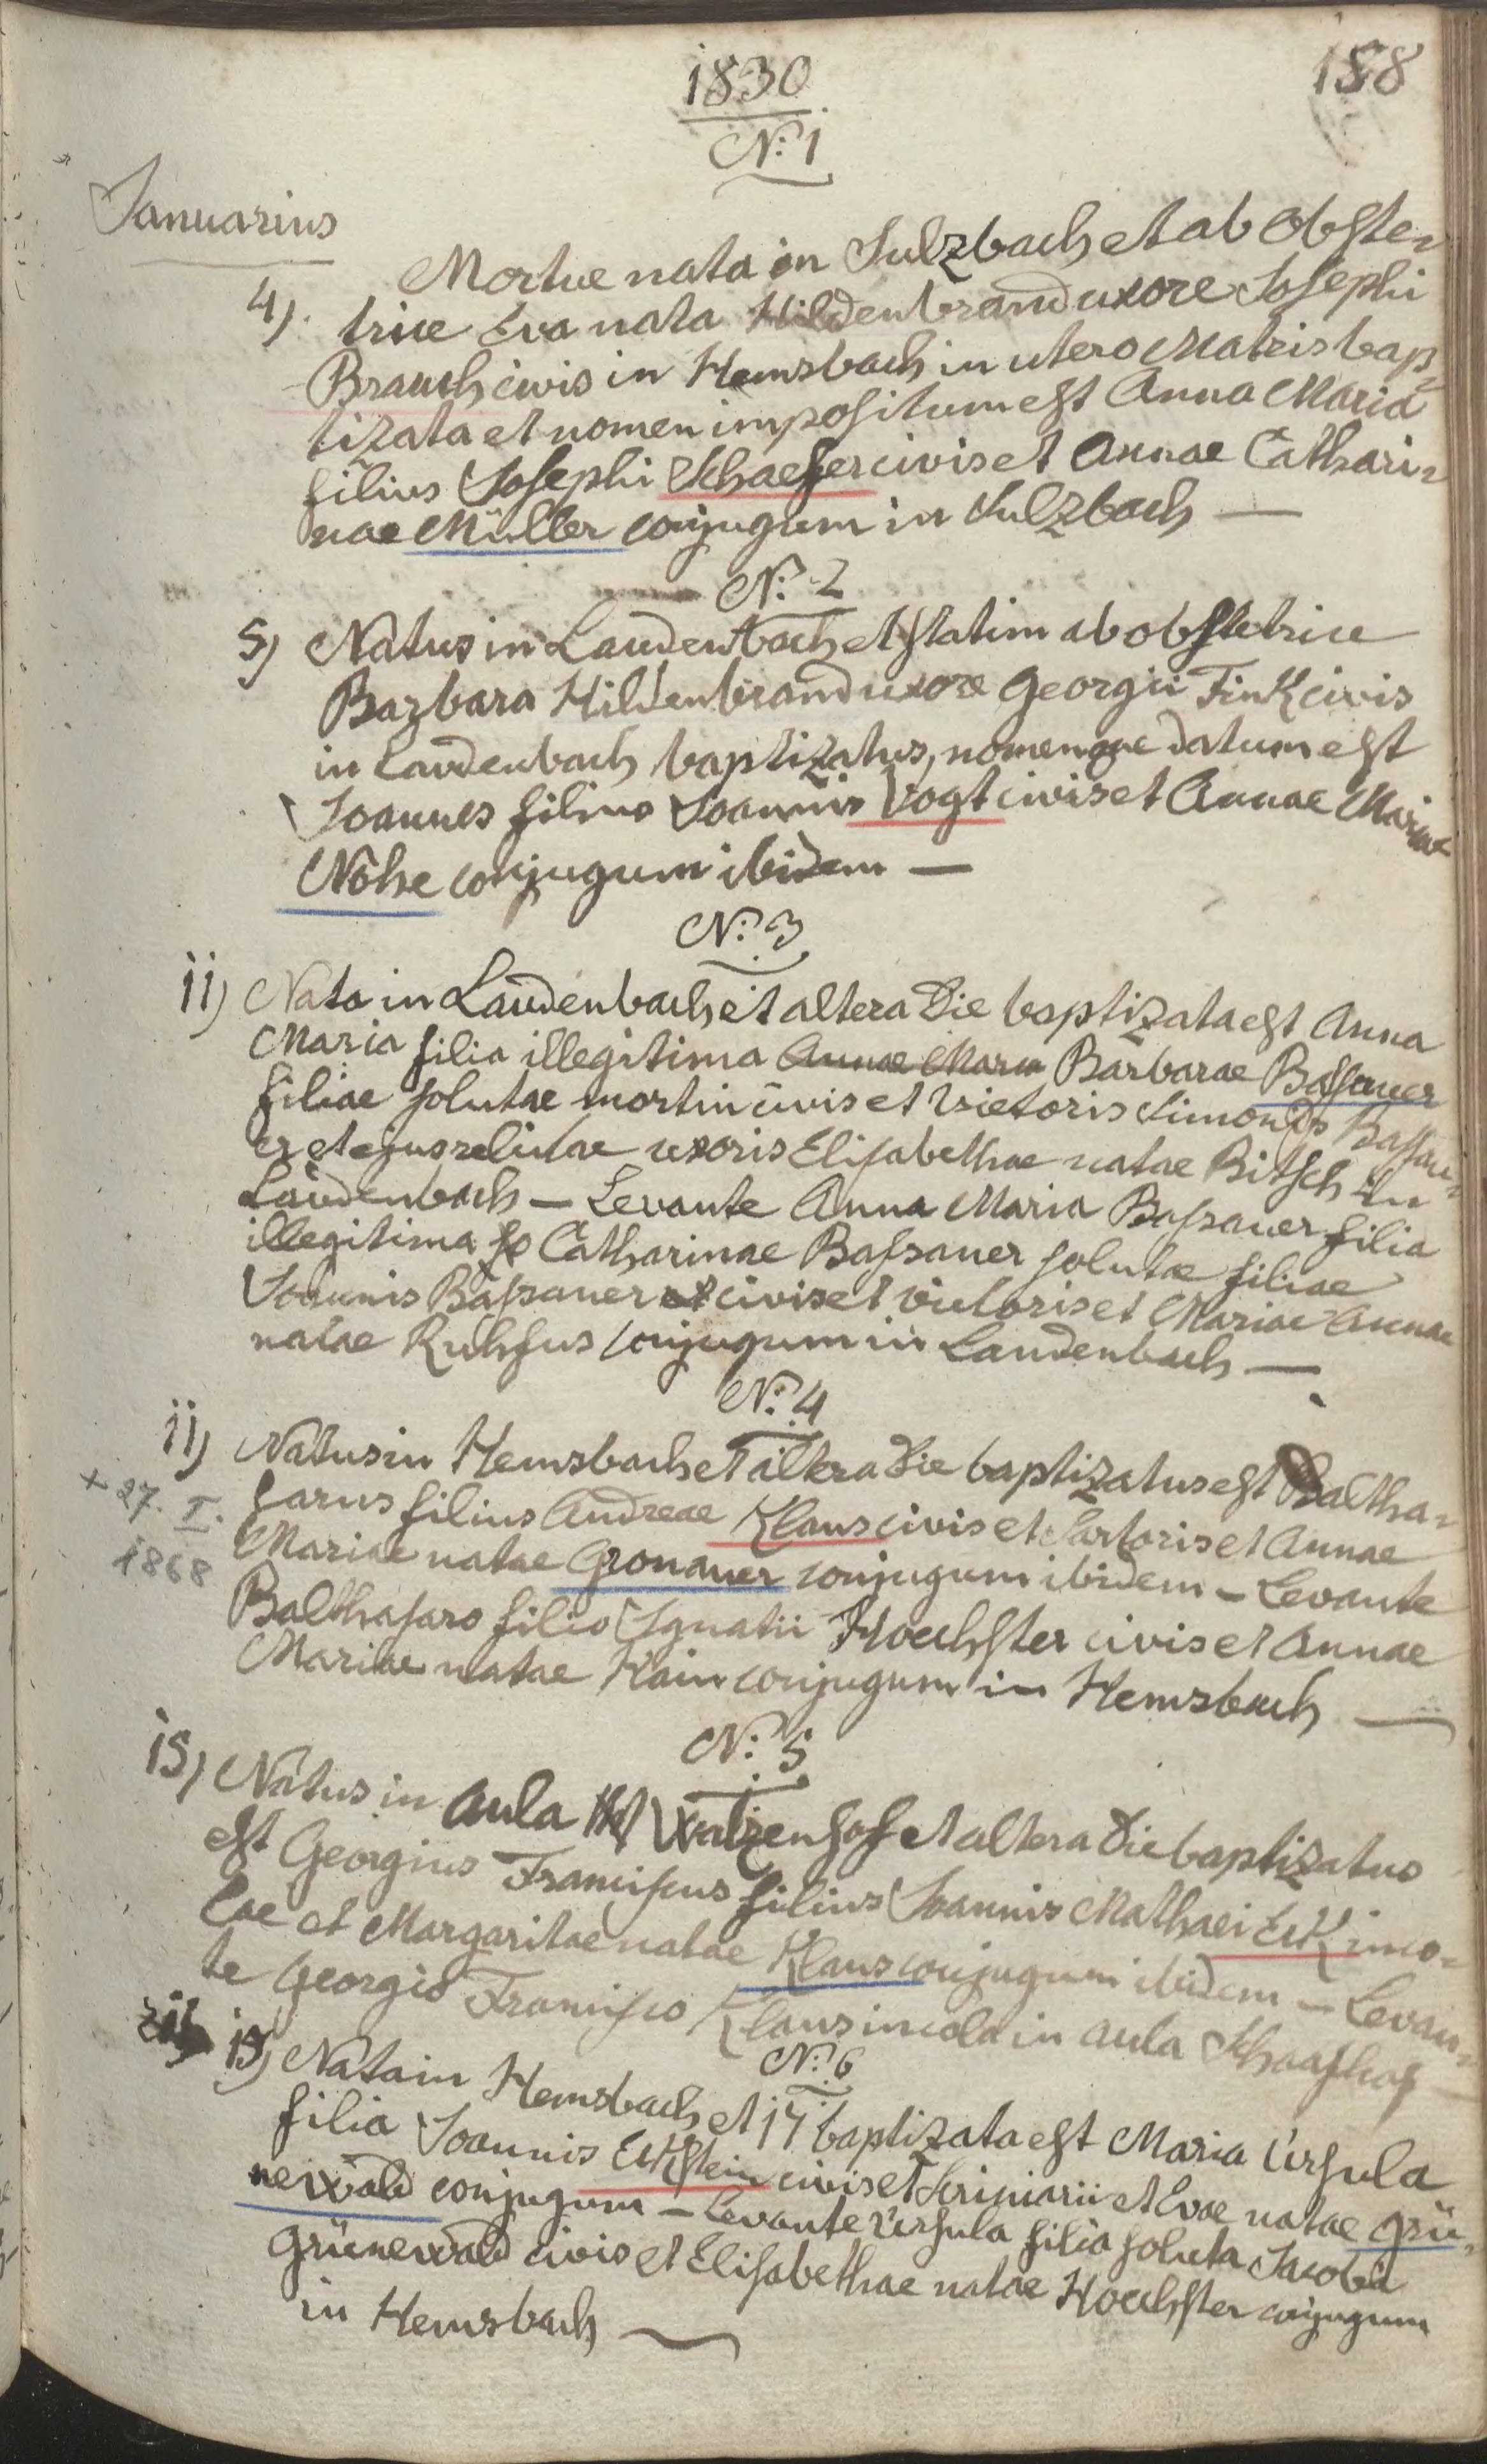 1830
188
N: 1
Januarius
Mortue nata in Sulzbach et ab obste-
4) trice Eva nata Hildenbrand uxore Josephi
Brauch civis in Hemsbach in utero Matris bap-
tizata et nomen impositum est Anna Maria
filius Josephi Schaefer civis et Annae Cathari-
nae Müller conjugum in Sulzbach —
N: 2
5) Natus in Laudenbach et statim ab obstetrice
Barbara Hildenbrand uxore Georgii Fink civis
in Laudenbach baptizatus, nomenque datum est
Joannes filius Joannis Vogt civis et Annae Mariae
Nohe conjugum ibidem —
N: 3
11) Nata in Laudenbach et altera die baptizata est Anna
Maria filia illegitima Annae Maria Barbarae Bassauer
filiae solutae mortui civis et Vietoris Simonis Bassau-
er et ejus relictae uxoris Elisabethae natae Bitsch in
Laudenbach — Levante Anna Maria Bassauer filia
illegitima Catharinae Bassauer solutae filiae
Joannis Bassauer civis et victoris et Mariae Annae
natae Ruhfus conjugum in Laudenbach —
N: 4
11) Natus in Hemsbach et altera die baptizatus est Baltha-
sarus filius Andreae Klaus civis et Sartoris et Annae
+ 27. I.
1868
Mariae natae Gronauer conjugum ibidem — Levante
Balthasaro filio Ignatii Hoechster civis et Annae
Mariae natae Hain conjugum in Hemsbach —
N: 5
15) Natus in aula Watzenhof et altera die baptizatus
est Georgius Franciscus filius Joannis Mathaei Eck inco-
lae et Margaritae natae Klaus conjugum ibidem — Levan-
te Georgio Francisco Klaus incola in aula Schaafhof —
N: 6
15) Nata in Hemsbach et 17 baptizata est Maria Ursula
filia Joannis Eckstein civis et Scriniarii et Evae natae Grü-
newald conjugum — Levante Ursula filia soluta Jacobi
Grünewald civis et Elisabethae natae Hoechster conjugum
in Hemsbach —